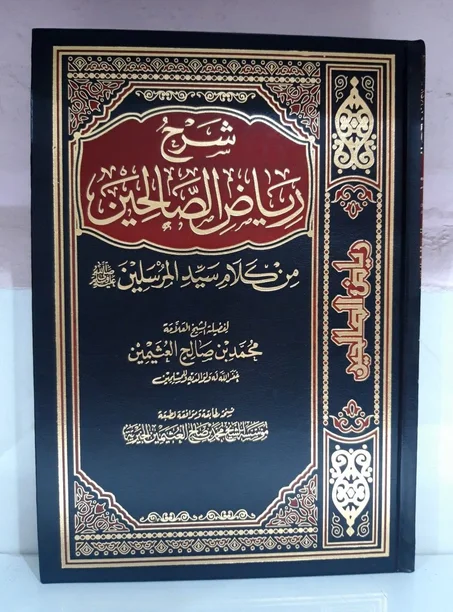 شرح
رياض الصالحين
من كلام سيد المرسلين ﷺ
لفضيلة الشيخ العلامة
محمد بن صالح العثيمين
غفر الله له ولوالديه وللمسلمين
نسخة مطابقة وموافقة لطبعة
مؤسسة الشيخ محمد بن صالح العثيمين الخيرية
رياض الصالحين